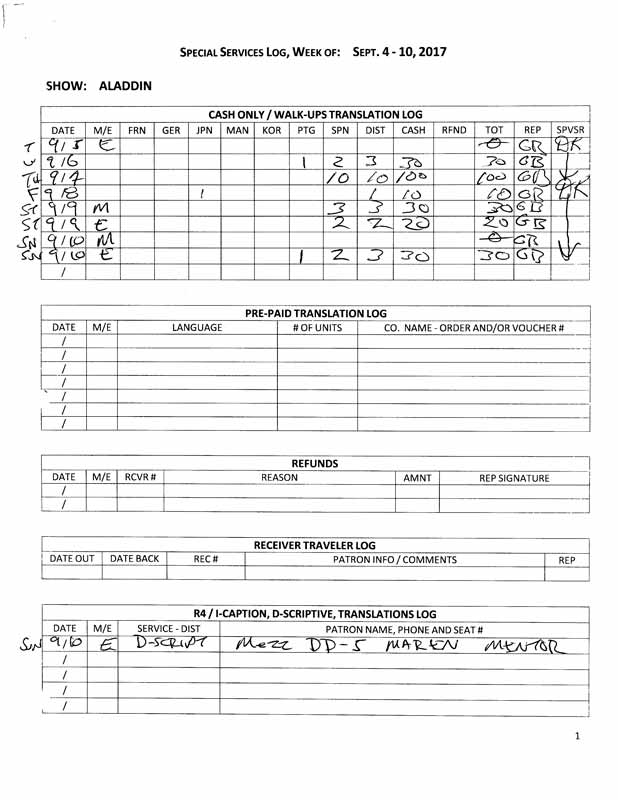 SPECIAL SERVICES LOG, WEEK OF: SEPT. 4 - 10, 2017
SHOW: ALADDIN
CASH ONLY / WALK-UPS TRANSLATION LOG
DATE M/E FRN GER JPN MAN KOR PTG SPN DIST CASH RFND TOT REP SPVSR
T 9/5 E 0 GR DK
W 9/6 1 2 3 30 30 GB
TH 9/7 10 10 100 100 GB
F 9/8 1 1 10 10 GR DK
ST 9/9 M 3 3 30 30 GB
ST 9/9 E 2 2 20 20 GB
SN 9/10 M 0 GR
SN 9/10 E 1 2 3 30 30 GB
/
PRE-PAID TRANSLATION LOG
DATE M/E LANGUAGE # OF UNITS CO. NAME - ORDER AND/OR VOUCHER #
/
/
/
/
/
/
/
REFUNDS
DATE M/E RCVR # REASON AMNT REP SIGNATURE
/
/
RECEIVER TRAVELER LOG
DATE OUT DATE BACK REC # PATRON INFO / COMMENTS REP
R4 / I-CAPTION, D-SCRIPTIVE, TRANSLATIONS LOG
DATE M/E SERVICE - DIST PATRON NAME, PHONE AND SEAT #
SN 9/10 E D-SCRIPT Mezz DD-5 MAREN MENTOR
/
/
/
/
1